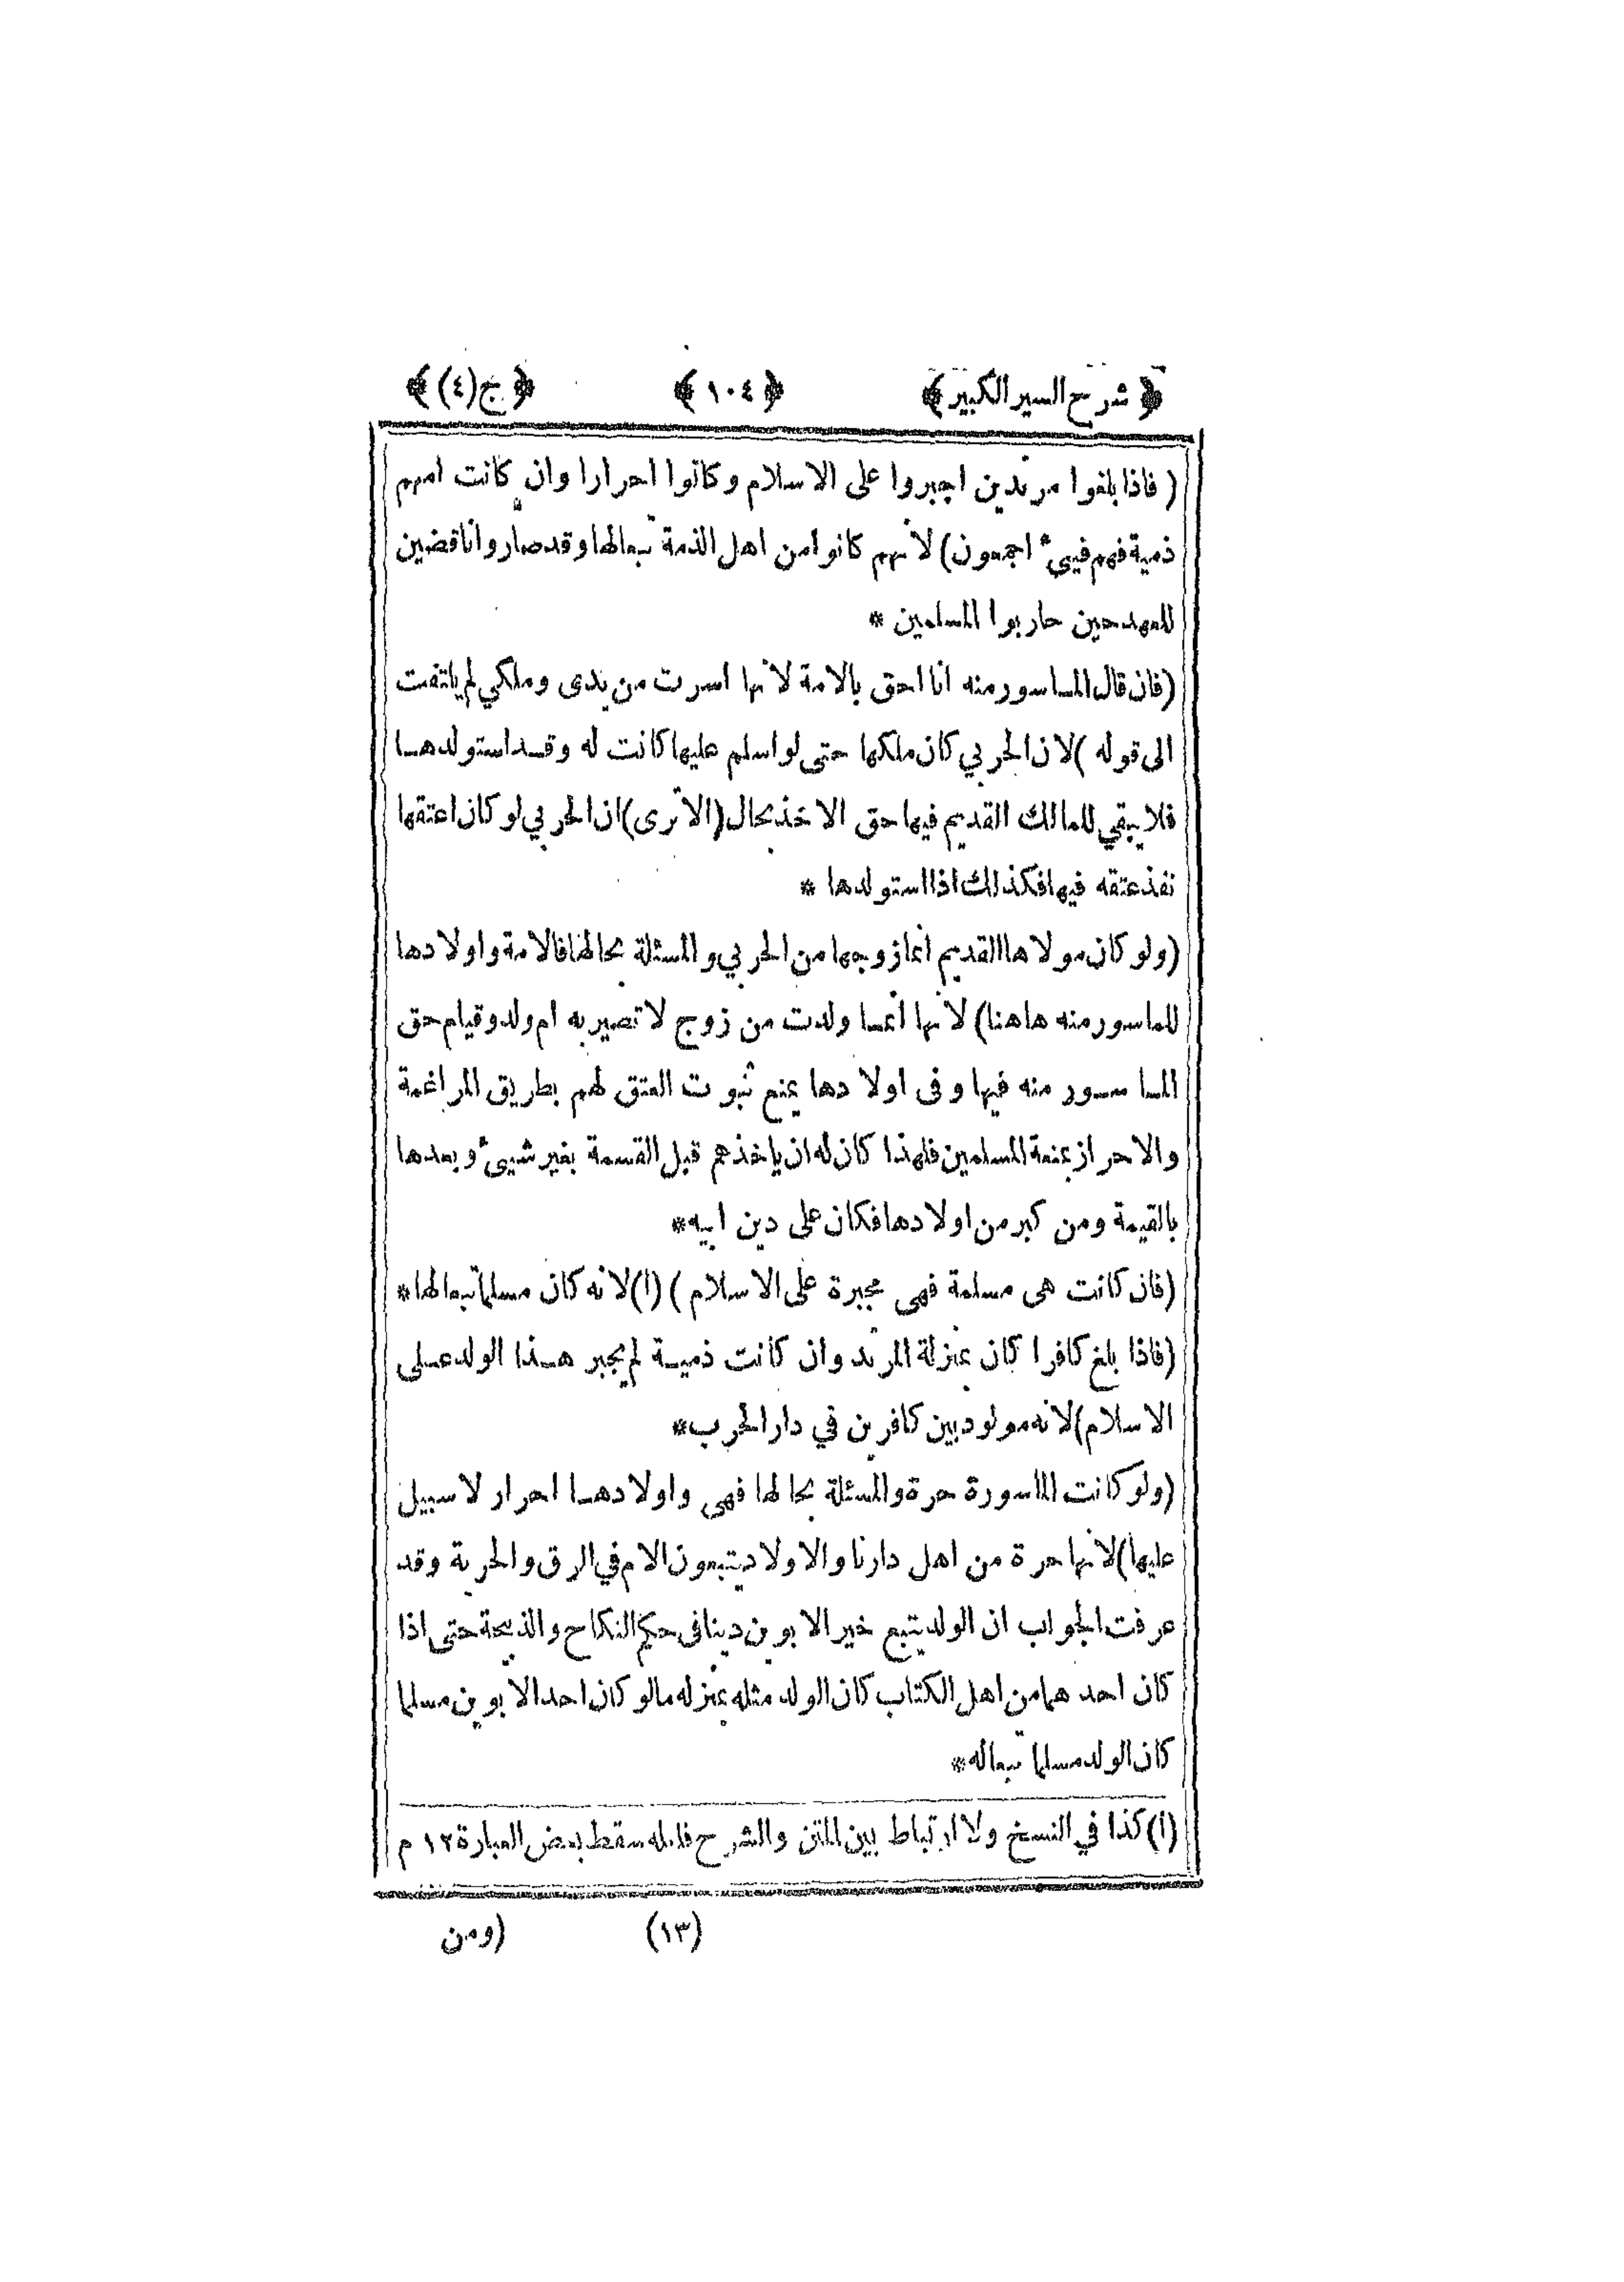 ﴿ شرح السير الكبير ﴾ ﴿ ١٠٤ ﴾ ﴿ ج (٤) ﴾
( فاذا بلغوا مرتدين اجبروا على الاسلام وكانوا احرارا وان كانت امهم
ذمية فهم فيىء اجمعون) لانهم كانوا من اهل الذمة تبعا لها وقد صاروا ناقضين
للعهد حين حاربوا المسلمين *
(فان قال الماسور منه انا احق بالامة لانها اسرت من يدى وملكي لم يلتفت
الى قوله )لان الحربي كان ملكها حتى لو اسلم عليها كانت له وقد استولدها
فلا يبقي للمالك القديم فيها حق الاخذ بحال (الاترى) ان الحربي لو كان اعتقها
نفذ عتقه فيها فكذلك اذا استولدها *
(ولو كان مولاها القديم انما زوجها من الحربي والمسئلة بحالها فالامة واولادها
للماسور منه هاهنا) لانها انما ولدت من زوج لا تصير به ام ولد وقيام حق
الماسور منه فيها وفى اولادها يمنع ثبوت العتق لهم بطريق المراغمة
والاحراز بمنعة المسلمين فلهذا كان له ان ياخذهم قبل القسمة بغير شيىء وبعدها
بالقيمة ومن كبر من اولادها فكان على دين ابيه *
(فان كانت هى مسلمة فهى مجبرة على الاسلام ) (١) لانه كان مسلما تبعا لها *
(فاذا بلغ كافرا كان بمنزلة المرتد وان كانت ذمية لم يجبر هذا الولد على
الاسلام) لانه مولود بين كافرين في دار الحرب *
(ولو كانت الماسورة حرة والمسئلة بحالها فهى واولادها احرار لا سبيل
عليها) لانها حرة من اهل دارنا والاولاد يتبعون الام في الرق والحرية وقد
عرفت الجواب ان الولد يتبع خير الابوين دينا فى حكم النكاح والذبيحة حتى اذا
كان احدهما من اهل الكتاب كان الولد مثله بمنزله ما لو كان احد الابوين مسلما
كان الولد مسلما تبعا له *
(١) كذا في النسخ ولا ارتباط بين المتن والشرح فلعله سقط بعض العبارة ١٢ م
(١٣) (ومن